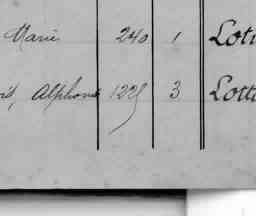 Marie 240 1 Loti
Alphonse 1225 3 Lott